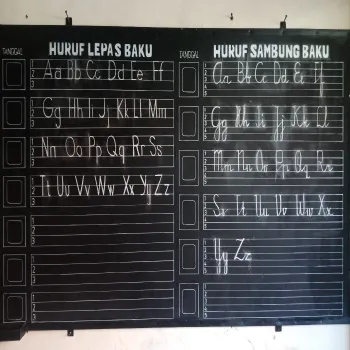 TANGGAL HURUF LEPAS BAKU
Aa Bb Cc Dd Ee Ff
Gg Hh Ii Jj Kk Ll Mm
Nn Oo Pp Qq Rr Ss
Tt Uu Vv Ww Xx Yy Zz
TANGGAL HURUF SAMBUNG BAKU
Aa Bb Cc Dd Ee Ff
Gg Hh Ii Jj Kk Ll
Mm Nn Oo Pp Qq Rr
Ss Tt Uu Vv Ww Xx
Yy Zz